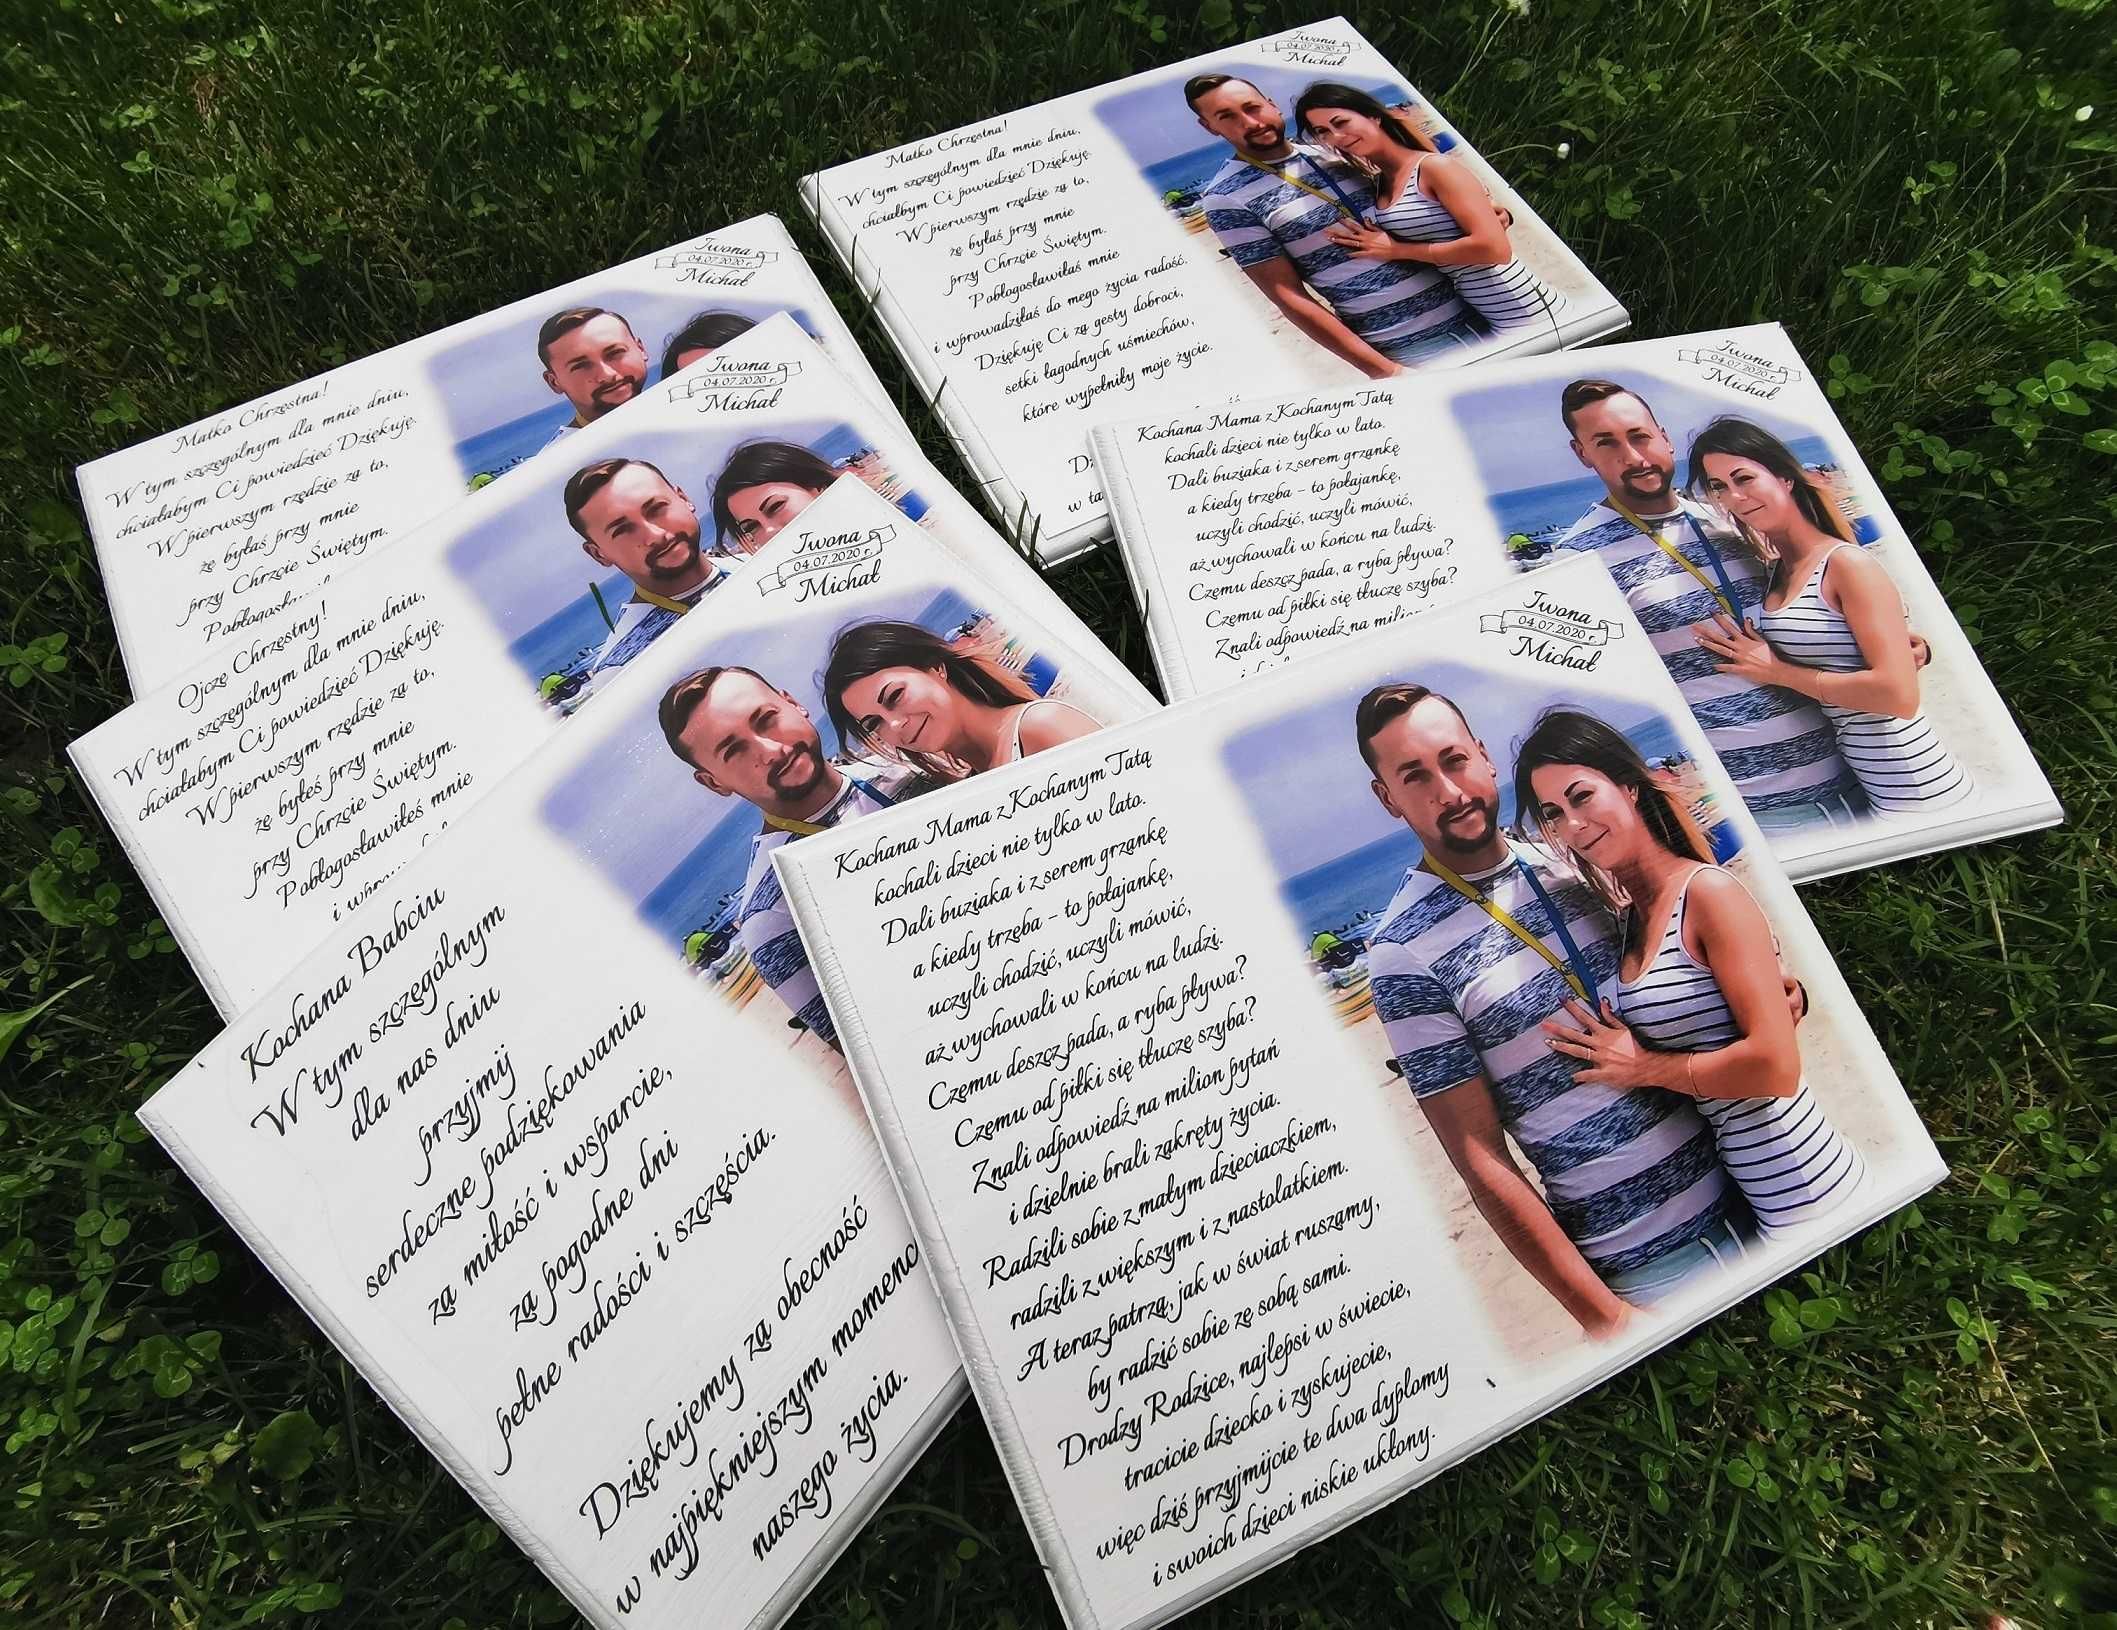 Iwona
04.07.2020 r.
Michał
Matko Chrzęstna!
W tym szczególnym dla mnie dniu,
chciałbym Ci powiedzieć Dziękuję.
W pierwszym rzędzie za to,
że byłaś przy mnie
przy Chrzcie Świętym.
Pobłogosławiłaś mnie
i wprowadziłaś do mego życia radość.
Dziękuję Ci za gesty dobroci,
setki łagodnych uśmiechów,
które wypełniły moje życie.
w ta
Iwona
04.07.2020 r.
Michał
Matko Chrzęstna!
W tym szczególnym dla mnie dniu,
chciałabym Ci powiedzieć Dziękuję.
W pierwszym rzędzie za to,
że byłaś przy mnie
przy Chrzcie Świętym.
Iwona
04.07.2020 r.
Michał
Ojcze Chrzęstny!
W tym szczególnym dla mnie dniu,
chciałabym Ci powiedzieć Dziękuję.
W pierwszym rzędzie za to,
że byłeś przy mnie
przy Chrzcie Świętym.
Pobłogosławiłeś mnie
Iwona
04.07.2020 r.
Michał
Kochana Babciu
W tym szczególnym
dla nas dniu
przyjmij
serdeczne podziękowania
za miłość i wsparcie,
za pogodne dni
pełne radości i szczęścia.
Dziękujemy za obecność
w najpiękniejszym momenc
naszego życia.
Iwona
04.07.2020 r.
Michał
Kochana Mama z Kochanym Tatą
kochali dzieci nie tylko w lato.
Dali buziaka i z serem grzankę
a kiedy trzeba – to połajankę,
uczyli chodzić, uczyli mówić,
aż wychowali w końcu na ludzi.
Czemu deszcz pada, a ryba pływa?
Czemu od piłki się tłucze szyba?
Znali odpowiedź na
Iwona
04.07.2020 r.
Michał
Kochana Mama z Kochanym Tatą
kochali dzieci nie tylko w lato.
Dali buziaka i z serem grzankę
a kiedy trzeba – to połajankę,
uczyli chodzić, uczyli mówić,
aż wychowali w końcu na ludzi.
Czemu deszcz pada, a ryba pływa?
Czemu od piłki się tłucze szyba?
Znali odpowiedź na milion pytań
i dzielnie brali zakręty życia.
Radzili sobie z małym dzieciaczkiem,
radzili z większym i z nastolatkiem.
A teraz patrzą, jak w świat ruszamy,
by radzić sobie ze sobą sami.
Drodzy Rodzice, najlepsi w świecie,
tracicie dziecko i zyskujecie,
więc dziś przyjmijcie te dwa dyplomy
i swoich dzieci niskie ukłony.